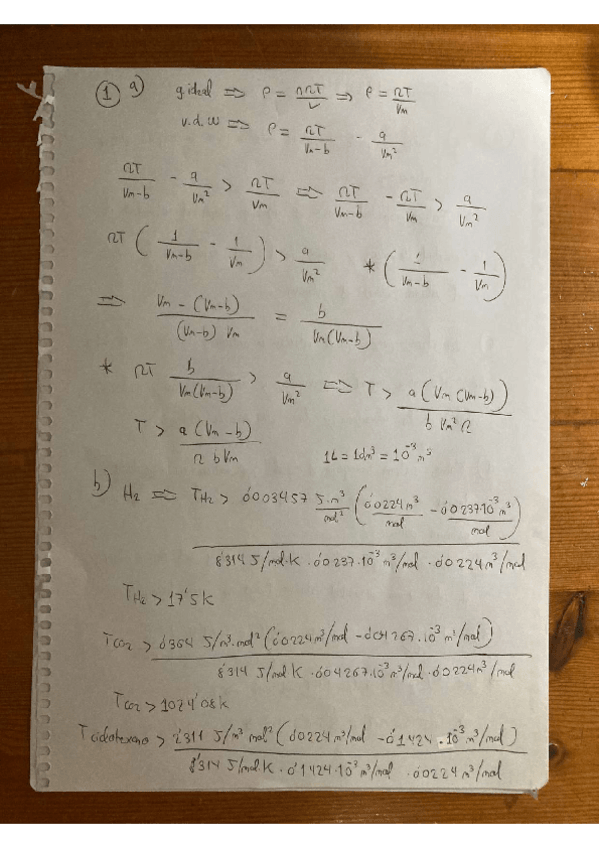 ① a) g.ideal ⇒ P = nRT/V ⇒ P = RT/Vm
v.d.W ⇒ P = RT/(Vm-b) - a/Vm²
RT/(Vm-b) - a/Vm² > RT/Vm ⇒ RT/(Vm-b) - RT/Vm > a/Vm²
RT (1/(Vm-b) - 1/Vm) > a/Vm² * (1/(Vm-b) - 1/Vm)
⇒ (Vm - (Vm-b))/((Vm-b) Vm) = b/(Vm(Vm-b))
* RT b/(Vm(Vm-b)) > a/Vm² ⇒ T > a(Vm(Vm-b))/(b Vm² R)
T > a(Vm-b)/(R b Vm) 1L = 1dm³ = 10⁻³ m³
b) H₂ ⇒ T_H₂ > 0'003457 J·m³/mol² (0'0224 m³/mol - 0'0237·10⁻³ m³/mol)
8'314 J/mol·K · 0'0237·10⁻³ m³/mol · 0'0224 m³/mol
T_H₂ > 17'5 K
T_CO₂ > 0'364 J/m³·mol² (0'0224 m³/mol - 0'04267·10⁻³ m³/mol)
8'314 J/mol K · 0'04267·10⁻³ m³/mol · 0'0224 m³/mol
T_CO₂ > 1024'08 K
T_ciclohexano > 2'311 J/m³ mol² (0'0224 m³/mol - 0'1424·10⁻³ m³/mol)
8'314 J/mol·K · 0'1424·10⁻³ m³/mol · 0'0224 m³/mol